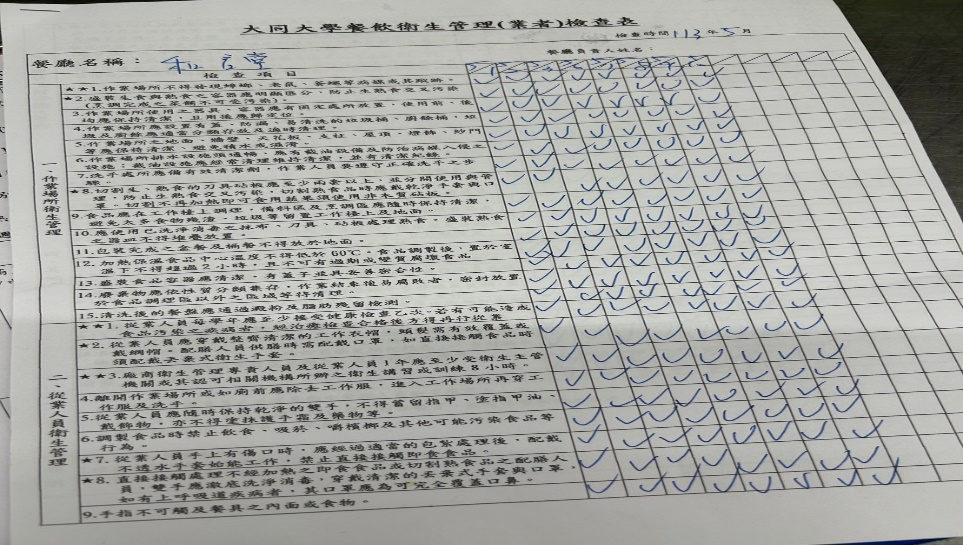 大同大學餐飲衛生管理(業者)檢查表
檢查時間:113年5月
餐廳名稱:
餐廳負責人姓名:
檢查項目
一、作業場所衛生管理
★★1.作業場所不得發現蟑螂、老鼠、蒼蠅等病媒或其蹤跡。
★2.盛裝生食與熟食之容器應明顯區分,防止生熟食交叉污染
(烹調完成之菜餚不可受污染)。
3.作業場所使用之器具、容器應有固定處所放置,使用前、後
均應保持清潔,且用後應歸定位。
4.作業場所應設置有蓋、防漏、易清洗的垃圾桶、廚餘桶,垃
圾及廚餘應適當分類存放及適時清理。
5.作業場所之地面、牆壁、天花板、支柱、屋頂、燈飾、紗門
等應保持清潔、避免積水或濕滑。
6.作業場所排水設施須通暢,應有截油設備及防治病媒入侵之
設施;截油設施應經常清理維持清潔,並有清潔紀錄。
7.洗手處所應備有效清潔劑,作業人員要遵守正確洗手之步
驟。
★8.切割生、熟食的刀具砧板應至少兩套以上,並分開使用與管
理,防止生熟食交叉污染,切割熟食品時應戴乾淨手套與口
罩,切割不再加熱即可食用蔬果須使用非木質砧板。
9.食品應在工作檯上調理,備料區及烹調區應隨時保持清潔,
避免太多食物殘渣、垃圾等留置工作檯上及地面。
10.應使用已洗淨消毒之抹布、刀具、砧板處理熟食,盛裝熟食
之器皿不得堆疊放置。
11.包裝完成之套餐及桶餐不得放於地面。
12.加熱保溫食品中心溫度不得低於60℃,食品調製後,置於室
溫下不得超過2小時,且不可有過期或變質腐壞食品
13.盛裝食品容器應清潔,有蓋子並具妥善密合性。
14.廢棄物應依性質分類集存,作業結束後易腐敗者,密封放置
於食品調理區以外之區域等待清理。
15.清洗後的餐盤應通過澱粉及脂肪殘留檢測。
二、從業人員衛生管理
★★1.從業人員每學年應至少接受健康檢查乙次,若有可能造成
食品污染之疾病者,經治療檢查合格後方得再行從業
★2.從業人員應穿戴整齊清潔的工作衣帽,頭髮需有效覆蓋或
戴網帽。配膳人員供膳時需配戴口罩,如直接接觸食品時
須配戴丟棄式衛生手套。
★★3.廠商衛生管理專責人員及從業人員1年應至少受衛生主管
機關或其認可相關機構所辦之衛生講習或訓練8小時。
4.離開作業場所或如廁前應除去工作服,進入工作場所再穿工
作服及洗手。
5.從業人員應隨時保持乾淨的雙手,不得蓄留指甲、塗指甲油、
戴飾物,亦不得塗抹護手霜及藥物等。
6.調製食品時禁止飲食、吸菸、嚼檳榔及其他可能污染食品等
行為。
★7.從業人員手上有傷口時,應經過適當的包紮處理後,配戴
不透水手套始能工作,禁止直接接觸即食食品。
★8.直接接觸處理不經加熱之即食食品或切割熟食品之配膳人
員,雙手應徹底洗淨消毒,穿戴清潔的丟棄式手套與口罩,
如有上呼吸道疾病者,其口罩應為可完全覆蓋口鼻。
9.手指不可觸及餐具之內面或食物。